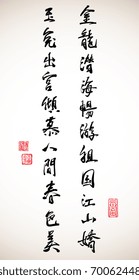 金龍潜海暢游祖国江山嬌
玉兔出宮傾慕人間春色美